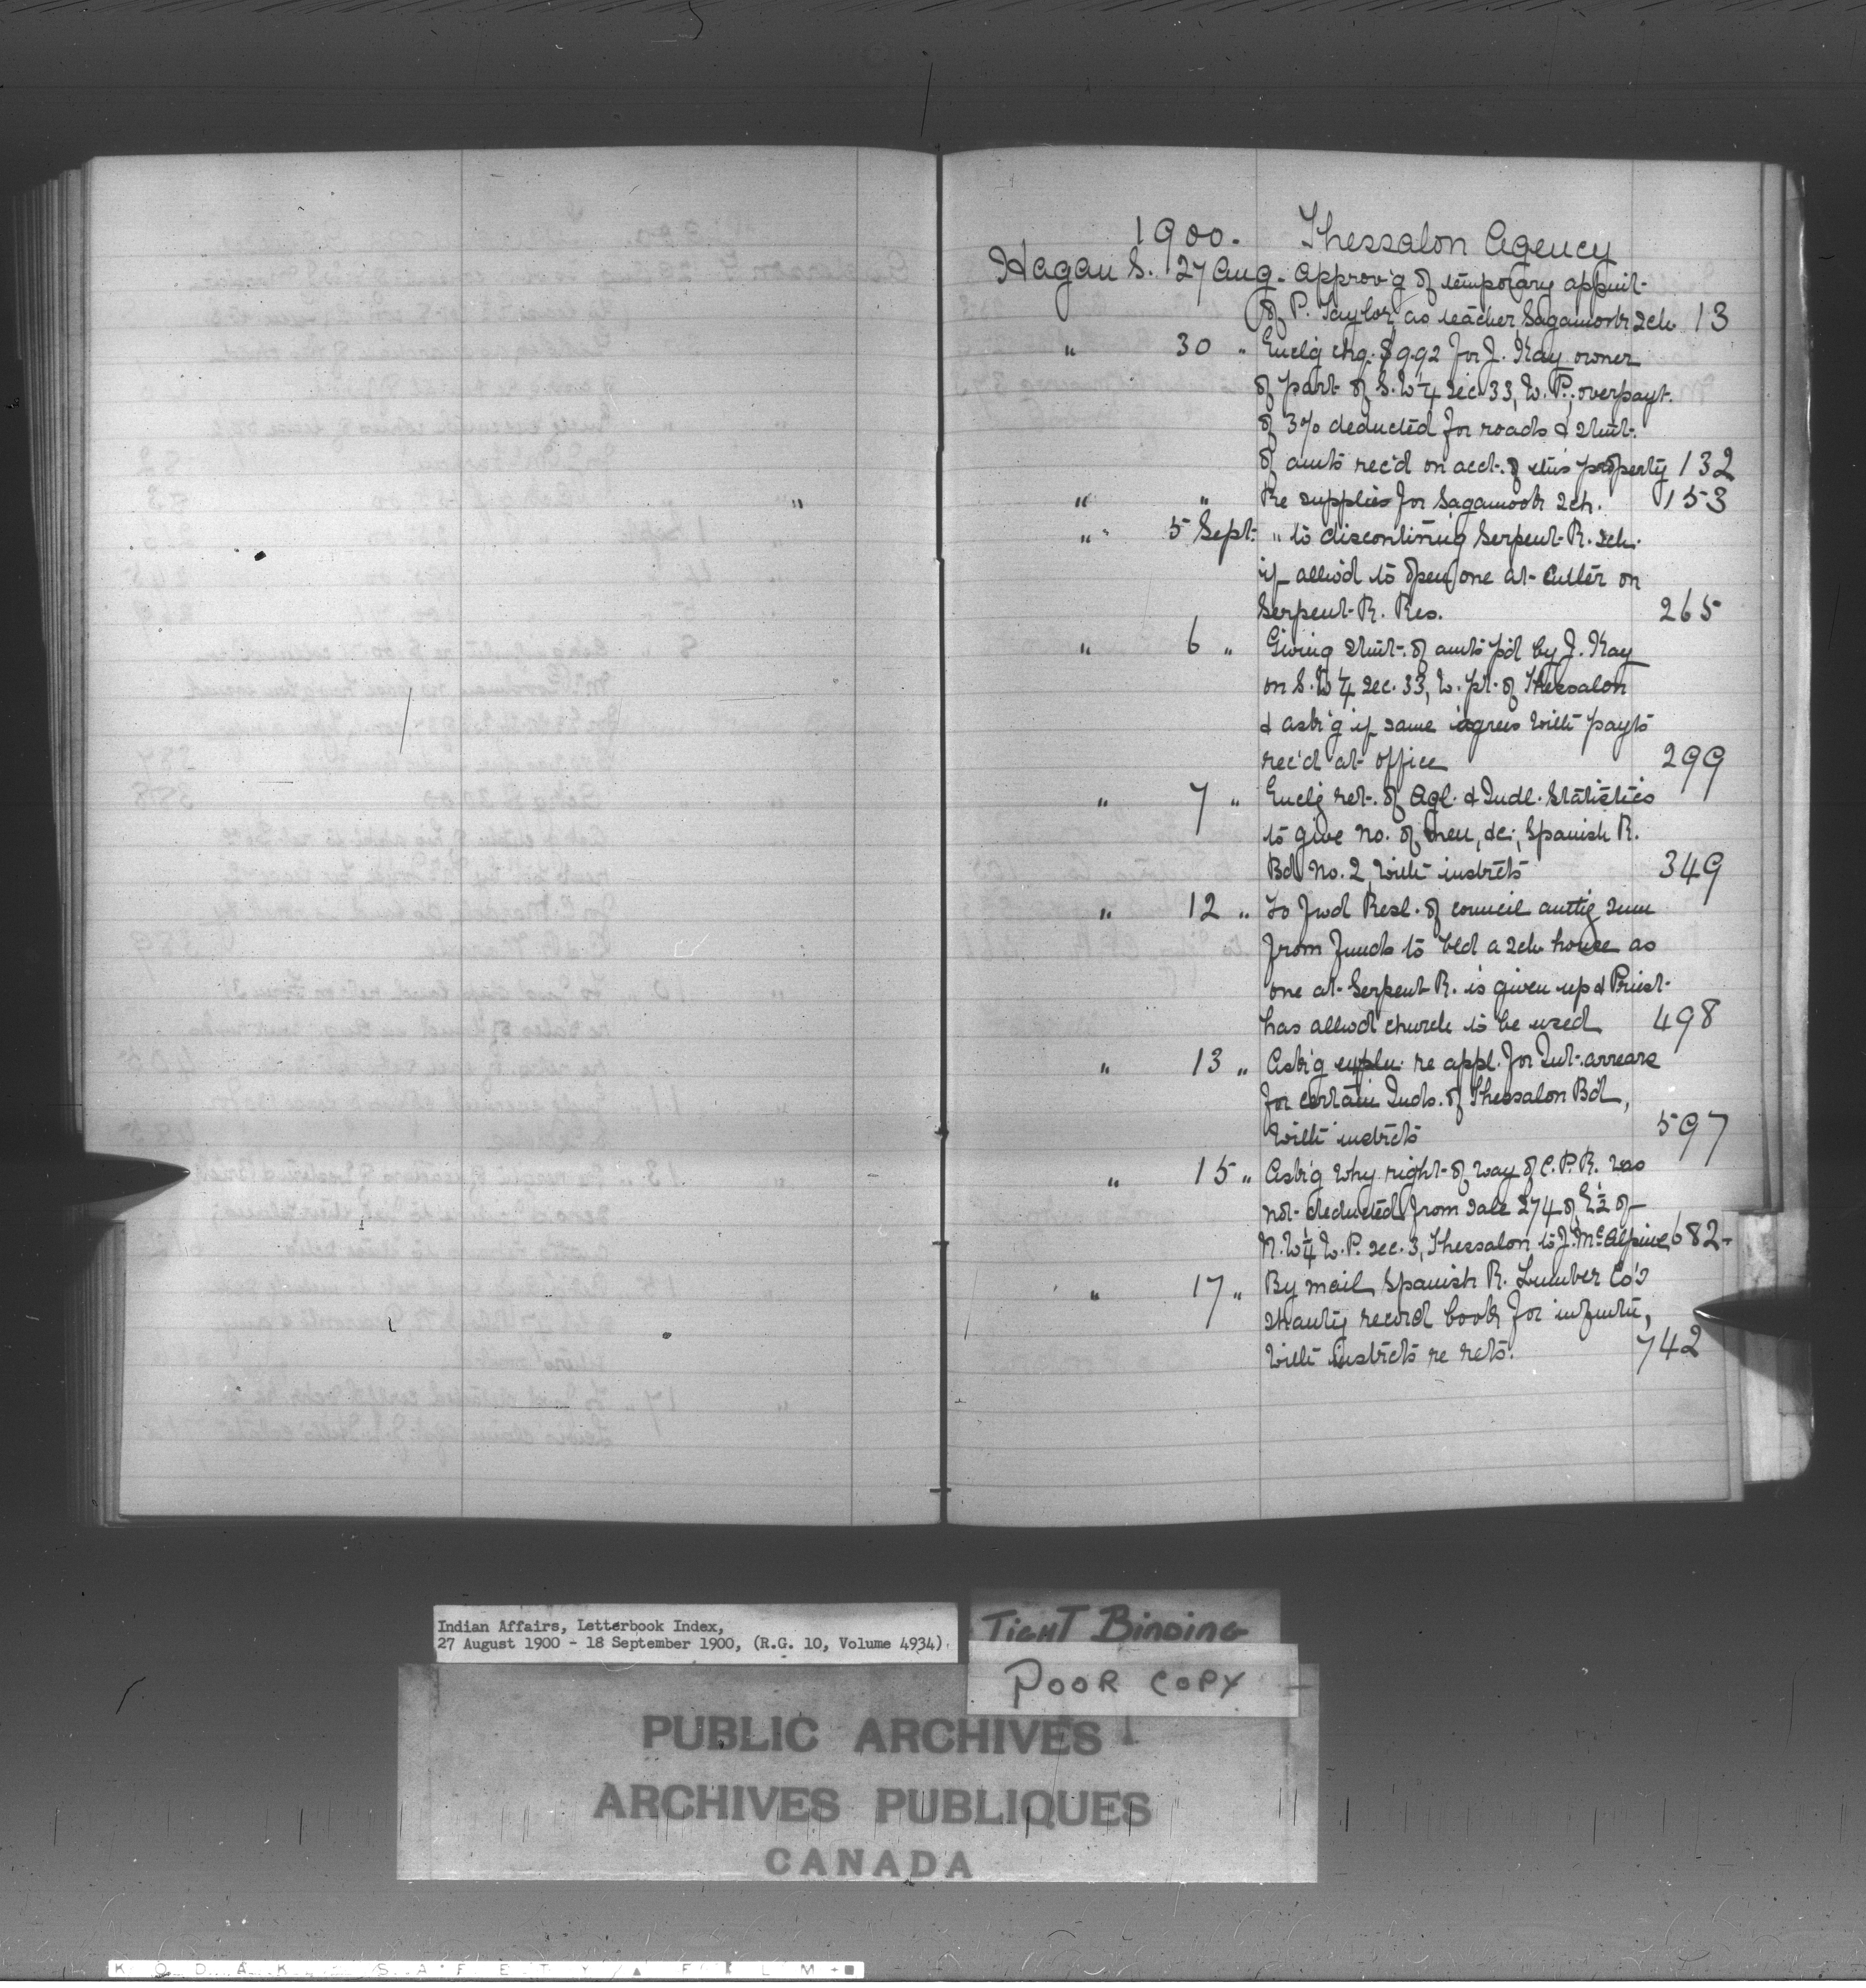 1900. Thessalon Agency
Hagan S. 27 Aug. Approv'g of temporary appmt.
of P. Taylor as teacher Sagamook Sch. 13
" 30 " Encl'g chq. $9.92 for J. Kay owner
of part of S.W ¼ Sec 33, W. P., overpayt.
of 3% deducted for roads & stmt.
of amts rec'd on acct. of this property 132
" " Re supplies for Sagamook Sch. 153
" 5 Sept. " to discontinuig Serpent R. Sch.
if allw'd to open one at Cutler on
Serpent R. Res. 265
" 6 " Giving stmt. of amts p'd by J. Kay
on S.W ¼ Sec. 33, W. pt. of Thessalon
& ask'g if same agrees with payts
rec'd at office 299
" 7 " Encl'g ret. of Agl. & Indl. Statistics
to give no. of men, &c; Spanish R.
Bd No. 2, with instrcts 349
" 12 " To fwd Resl. of council authg sum
from funds to bld a sch house as
one at Serpent R. is given up & Priest
has allwd church to be used 498
" 13 " Ask'g expln. re appl. for Int. arrears
for certain Inds. of Thessalon Bd,
with instrcts 597
" 15 " Ask'g why right of way of C.P.R. was
not deducted from sale 274 of E ½ of
N.W ¼ W.P. sec. 3, Thessalon to J. McAlpine 682
" 17 " By mail Spanish R. Lumber Co's
shanty record book for infmtn,
with instrcts re rets. 742
Indian Affairs, Letterbook Index,
27 August 1900 - 18 September 1900, (R.G. 10, Volume 4934)
TIGHT BINDING
POOR COPY
PUBLIC ARCHIVES
ARCHIVES PUBLIQUES
CANADA
KODAK SAFETY FILM